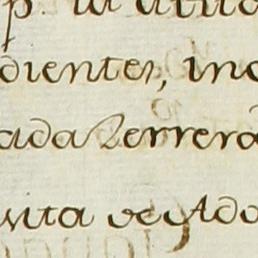 dientes, ino
ada Zerrera
uita de Ado